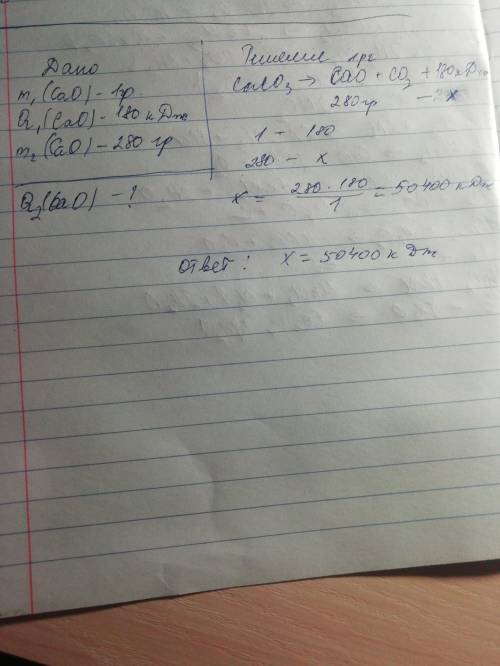 Дано
m₁(CaO) - 1гр
Q₁(CaO) - 180 кДж
m₂(CaO) - 280 гр
Q₂(CaO) - ?
Решение 1гр
CaCO₃ → CaO + CO₂ + 180кДж
280гр - x
1 - 180
280 - x
x = 280 · 180 / 1 = 50400 кДж
Ответ: x = 50400 кДж